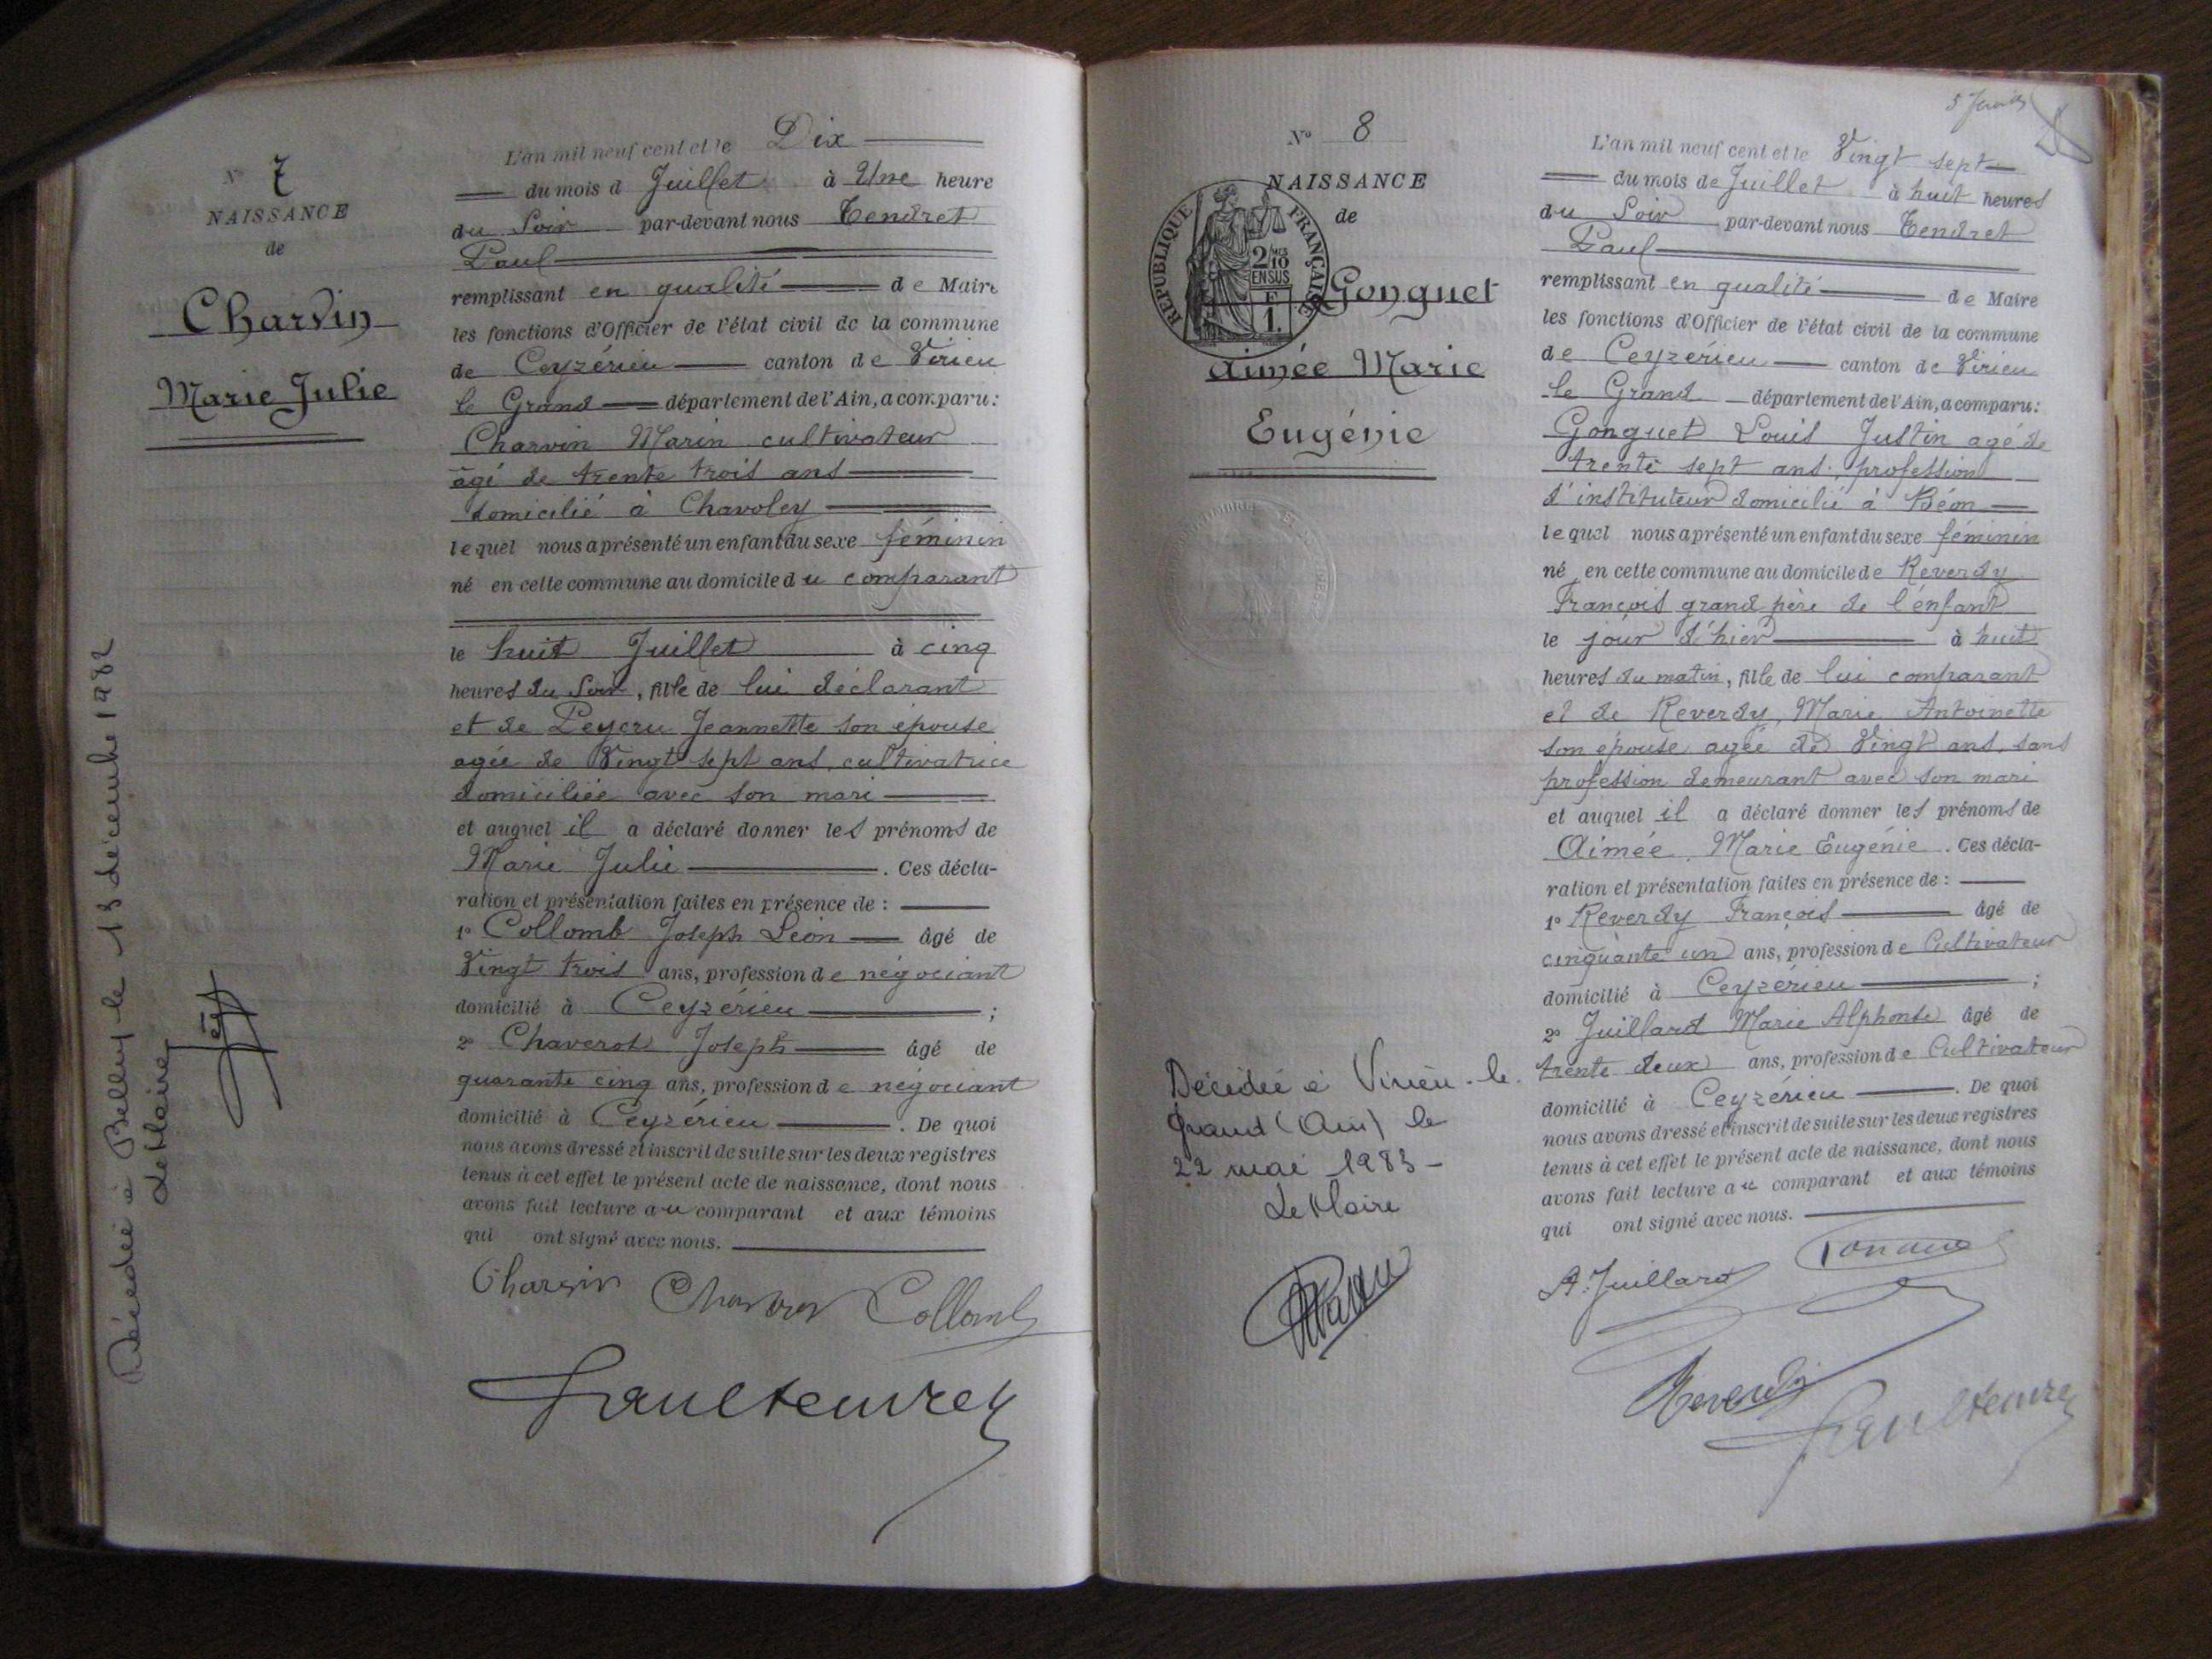 N° 7
NAISSANCE
de
Charvin
Marie Julie
Décédée à Belley le 13 décembre 1982
Le Maire,
L'an mil neuf cent et le Dix
du mois d Juillet à Une heure
du Soir par-devant nous Tendret
Paul
remplissant en qualité de Maire
les fonctions d'Officier de l'état civil de la commune
de Ceyzérieu canton de Virieu
le Grand département de l'Ain, a comparu:
Charvin Marin cultivateur
âgé de trente trois ans
domicilié à Chavoley
lequel nous a présenté un enfant du sexe féminin
né en cette commune au domicile du comparant
le huit Juillet à cinq
heures du Soir, fille de lui déclarant
et de Peycru Jeannette son épouse
agée de Vingt sept ans, cultivatrice
domiciliée avec son mari
et auquel il a déclaré donner les prénoms de
Marie Julie . Ces décla-
ration et présentation faites en présence de :
1° Collomb Joseph Léon âgé de
Vingt trois ans, profession de négociant
domicilié à Ceyzérieu ;
2° Chaverot Joseph âgé de
quarante cinq ans, profession de négociant
domicilié à Ceyzérieu . De quoi
nous avons dressé et inscrit de suite sur les deux registres
tenus à cet effet le présent acte de naissance, dont nous
avons fait lecture au comparant et aux témoins
qui ont signé avec nous.
Charvin Chaverot Collomb
Paul Tendret
N° 8
NAISSANCE
de
RÉPUBLIQUE FRANÇAISE
2/10
EN SUS
F
1.
Gonguet
Aimée Marie
Eugénie
Décédée à Virieu-le-
Grand (Ain) le
22 mai 1983 -
Le Maire
L'an mil neuf cent et le Vingt sept
du mois de Juillet à huit heures
du Soir par-devant nous Tendret
Paul
remplissant en qualité de Maire
les fonctions d'Officier de l'état civil de la commune
de Ceyzérieu canton de Virieu
le Grand département de l'Ain, a comparu:
Gonguet Louis Justin agé de
trente sept ans, profession
d'instituteur domicilié à Béon
lequel nous a présenté un enfant du sexe féminin
né en cette commune au domicile de Reverdy
François grand père de l'enfant
le jour d'hier à huit
heures du matin, fille de lui comparant
et de Reverdy, Marie Antoinette
son épouse agée de Vingt ans, sans
profession demeurant avec son mari
et auquel il a déclaré donner les prénoms de
Aimée, Marie Eugénie . Ces décla-
ration et présentation faites en présence de :
1° Reverdy François âgé de
cinquante un ans, profession de Cultivateur
domicilié à Ceyzérieu ;
2° Juillard Marie Alphonse âgé de
trente deux ans, profession de Cultivateur
domicilié à Ceyzérieu . De quoi
nous avons dressé et inscrit de suite sur les deux registres
tenus à cet effet le présent acte de naissance, dont nous
avons fait lecture au comparant et aux témoins
qui ont signé avec nous.
A. Juillard Gonguet
Reverdy
Paul Tendret